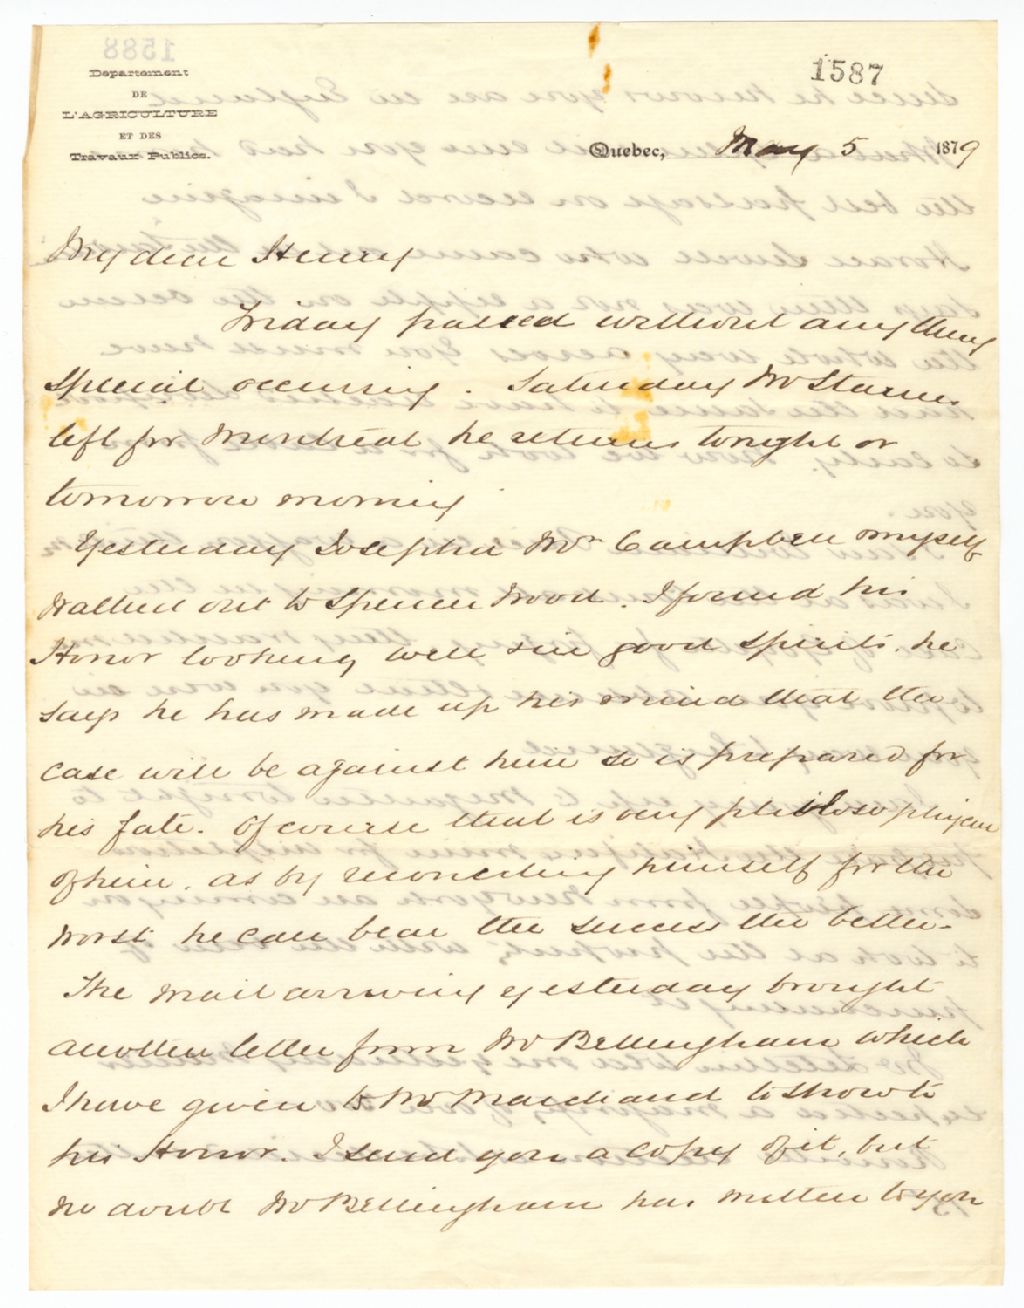 1588
1587
Departement
DE
L'AGRICULTURE
ET DES
Travaux Publics.
Quebec, May 5 1879
My dear Henry
Friday passed without any thing
special occurring. Saturday Mr Starnes
left for Montreal he returns tonight or
tomorrow morning
Yesterday Josepha Mr Campbell myself
walked out to Spencer Wood. I found his
Honor looking well & in good spirits. he
says he has made up his mind that the
case will be against him so is prepared for
his fate. Of course that is very philosophical
of him, as by reconciling himself for the
worst he can bear the success the better.
The mail arriving yesterday brought
another letter from Mr Bellingham which
I have given to Mr Marchand to show to
his Honor. I send you a copy of it, but
no doubt Mr Bellingham has written to you